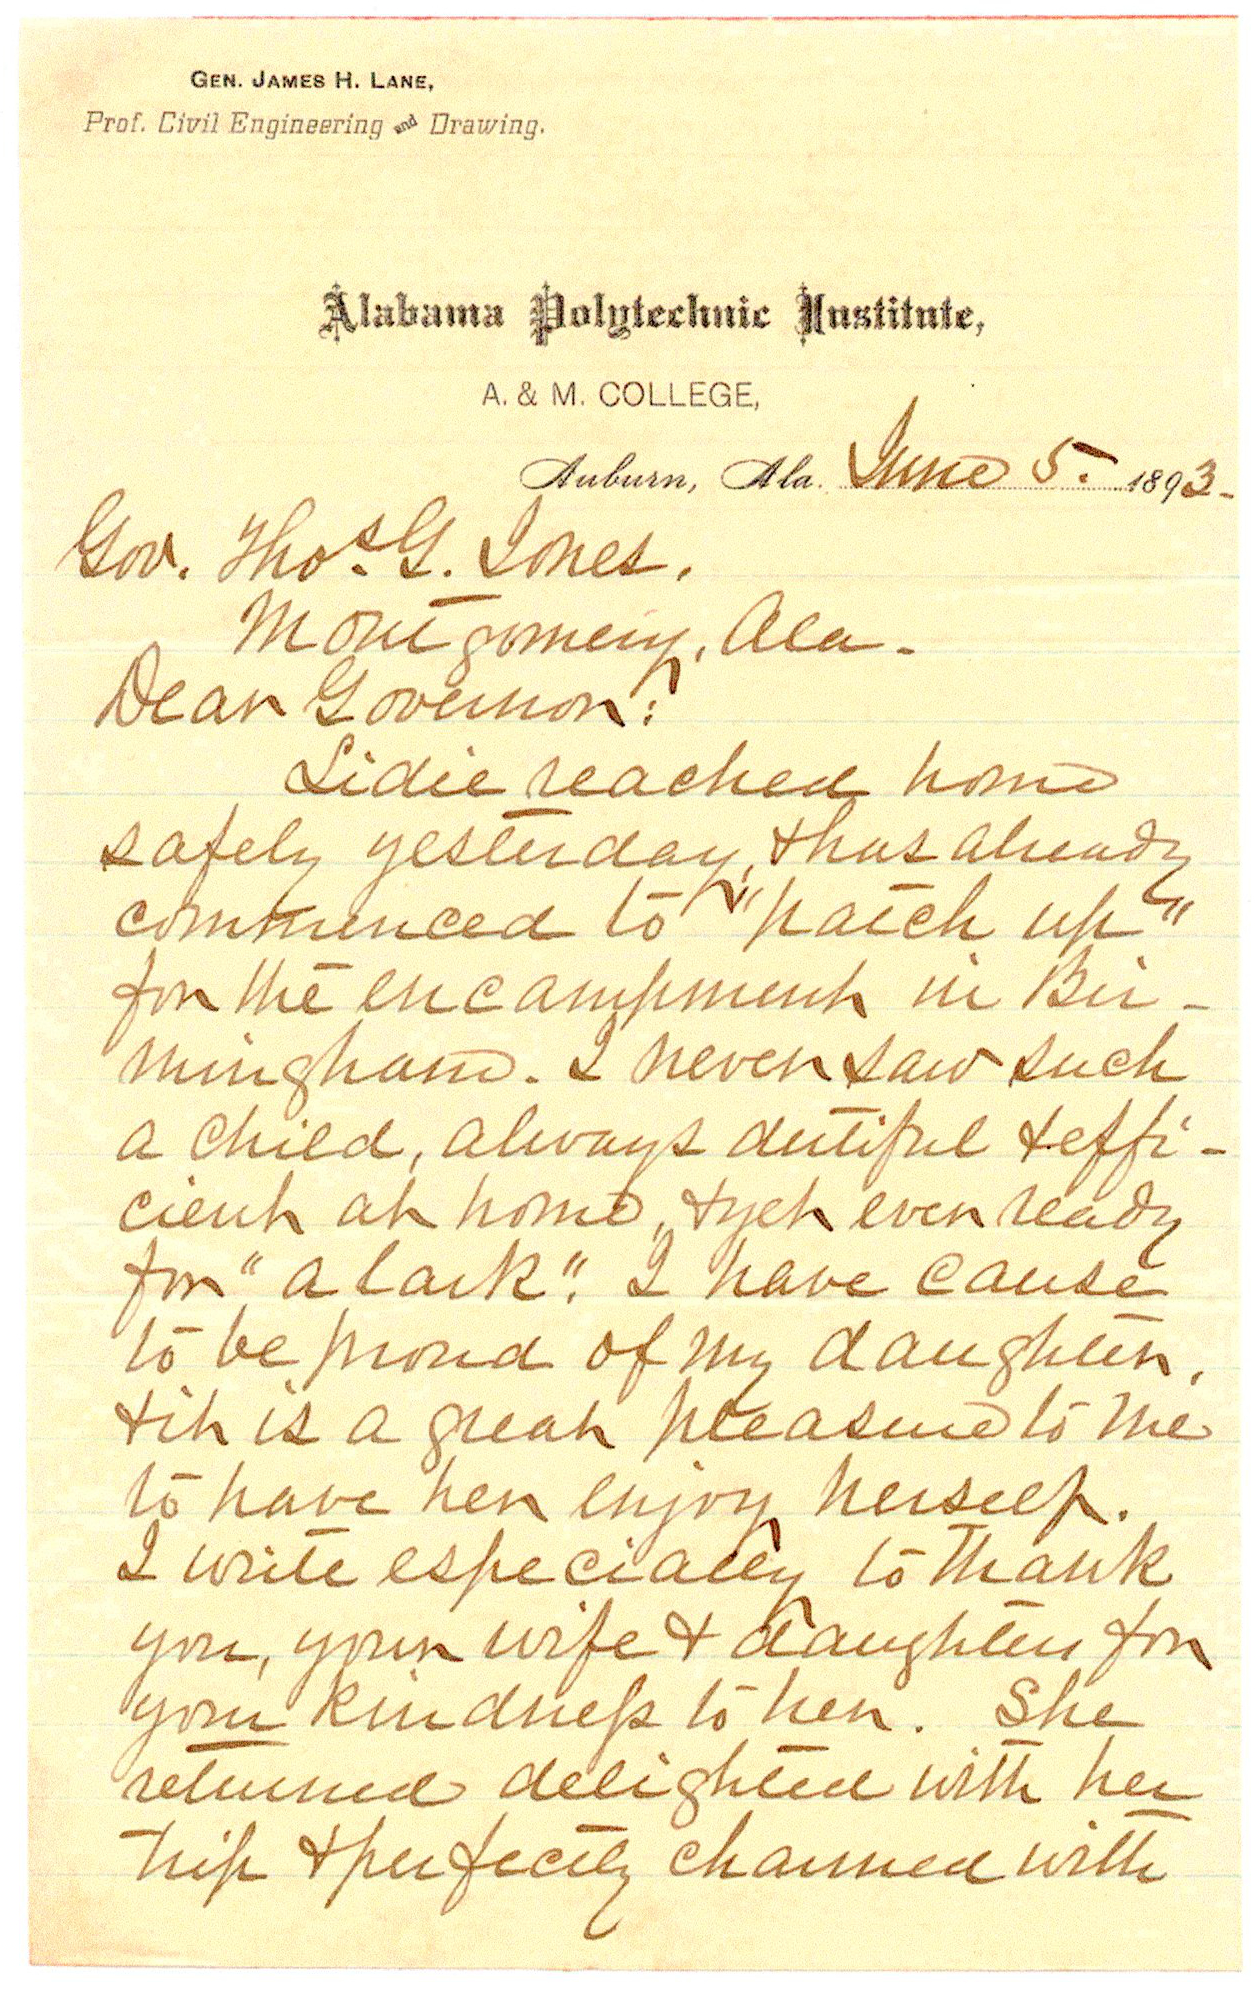 GEN. JAMES H. LANE,
Prof. Civil Engineering and Drawing.
Alabama Polytechnic Institute,
A. & M. COLLEGE,
Auburn, Ala. June 5. 1893-
Gov. Thos. G. Jones,
Montgomery, Ala-
Dear Governor:
Lidie reached home
safely yesterday, & has already
commenced to "patch up"
for the encampment in Bir-
mingham. I never saw such
a child, always dutiful & effi-
cient at home, & yet ever ready
for "a lark". I have cause
to be proud of my daughter,
& it is a great pleasure to me
to have her enjoy herself.
I write especially to thank
you, your wife & daughter for
your kindness to her. She
returned delighted with her
trip & perfectly charmed with